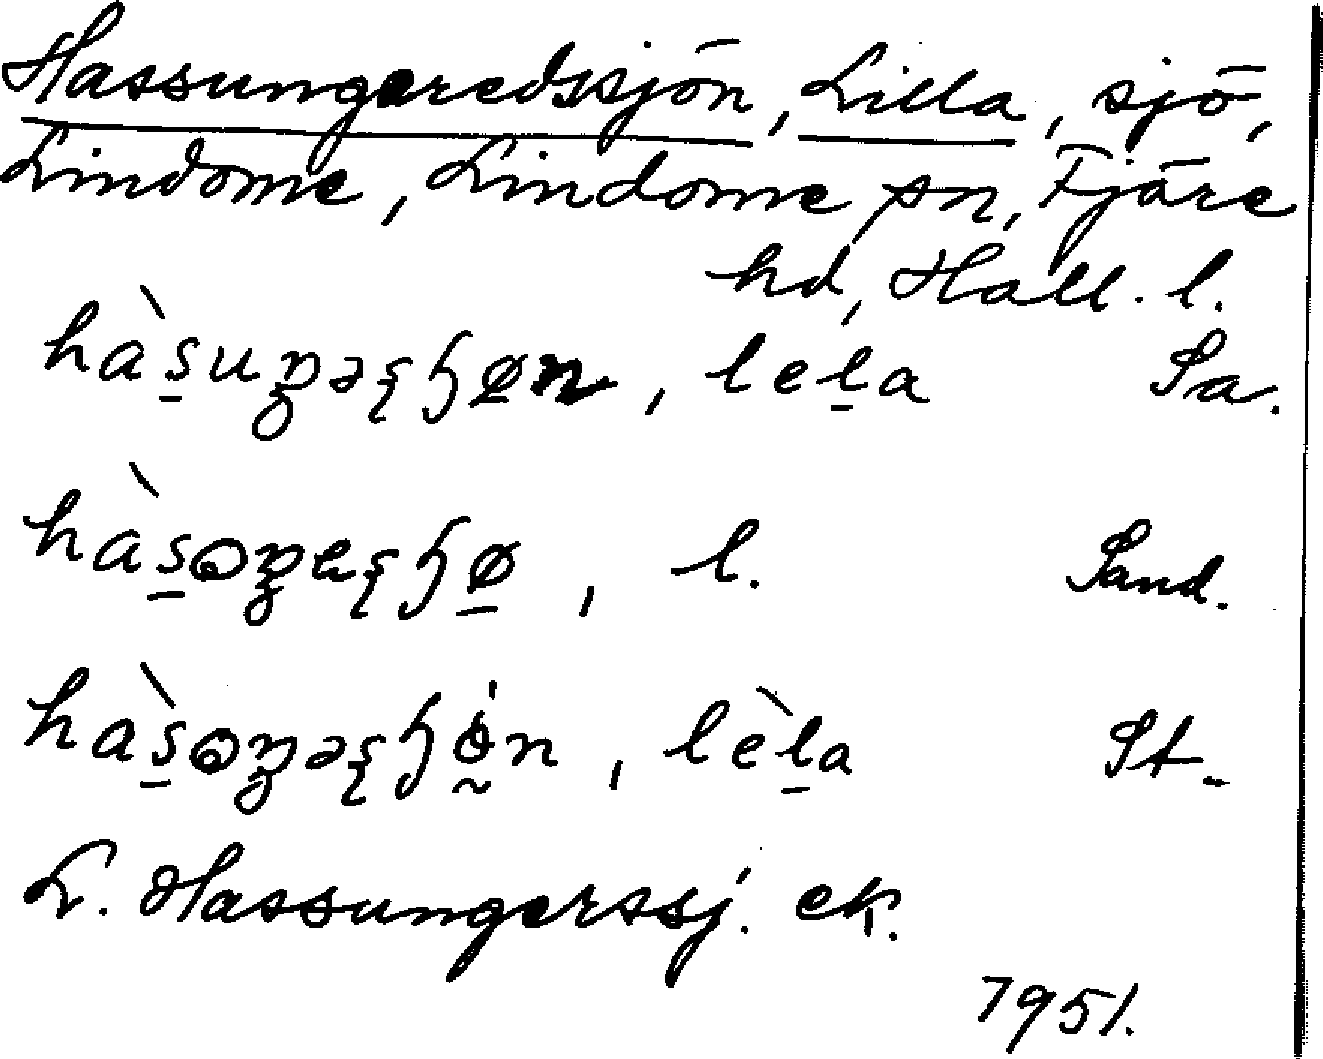 Hassungeredssjön, Lilla, sjö,
Lindome, Lindome sn, Fjäre
hd, Hall. l.
hàs̠uŋəʂɧø̠n, lel̠a Sa.
hàs̠ɷŋeʂɧø̠, l. Sand.
hàs̠ɷŋəʂɧö̰́n, lèl̠a St.
L. Hassungerssj. ek.
1951.